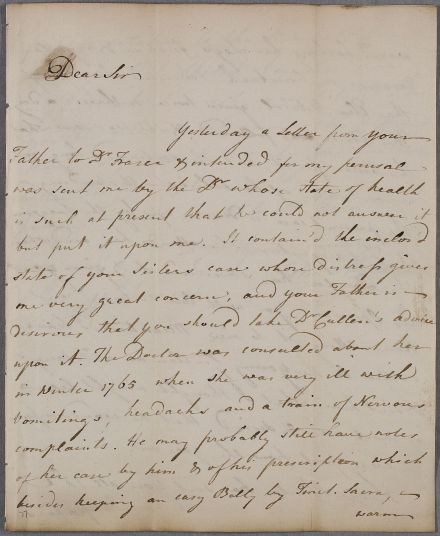 Dear Sir
Yesterday a Letter from your
Father to Dr. Fraser & intended for my perusal
was sent me by the Dr. whose state of health
is such at present that he could not answer it
but put it upon me. It contain'd the inclos'd
state of your Sisters case, whose distress gives
me very great concern, and your Father is
desirous that you should take Dr. Cullen's advice
upon it. The Doctor was consulted about her
in Winter 1765 when she was very ill with
Vomitings, headachs and a train of Nervous
complaints. He may probably still have notes
of her case by him & of his prescription which
besides keeping an easy Belly by Tinct. Sacra,
warm